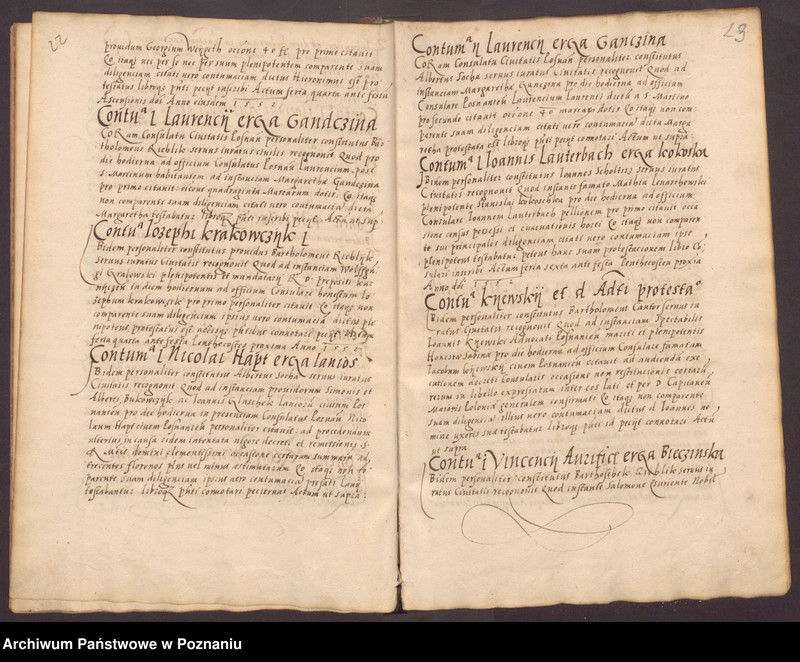 22
providum Georgium Wengeth occõne 40 fl. pro primo citavit
Co itaqз nec per se nec per suum plenipotentem comparente suam
diligenciam citati vero contumaciam dictus Hieronimus est pro
testatus libroqз pñti petyt inscribi Actum feria quarta ante festu
Ascensionis dñi Anno eiusdem 1552
Contuª I Laurencij erga Gandczina
Coram Consulatu Civitatis Posnañ personaliter constitutus Bar
tholomeus Rieblik servus iuratus civilis recognovit Quod pro
die hodierna ad officium Consulatus Posnañ Laurencium post
S. Martinum habitantem ad instanciam Margarethæ Gandczina
pro primo citavit occõne quadraginta Marcarum dotis. Co itaqз
non comparente suam diligenciam citati vero contumaciam dicta
Margaretha testabatur libroqз pñti inscribi petyt. Acta ut sup.
Contuª Iozephi krakowczijk I
Ibidem personaliter constitutus providus Bartholomeus Rieblijk
servus iuratus Civitatis recognovit Quod ad instanciam
Grajowski plenipotentis et mandatarij R. D. prepositi
in diem hodiernum ad officium Consulare honestum Io
zephum krakowczik pro primo personaliter citavit Co itaqз non
comparente suam diligenciam ipsius vero contumaciam dictus ple
nipotens protestatus est
feria quarta ante festa Penthecostes proxima Anno 1552
Contumª I Nicolai Hapt erga lanios
Ibidem personaliter constitutus Albertus Socha servus iuratus
Civitatis recognovit Quod ad instanciam providorum Simonis et
Alberti Bukowczyk ac Ioannis Kluschek laniorũ civium Pos
naniens pro die hodierna in presenciam Consulatus Posnañ Nico
laum Hapt civem Posnañ personaliter citavit ad procedendum
ulterius in causa eidem intentata vigore decreti et remissionis S.
R. Mtis domini clementissimi occasione certarum summarum ad
trecentos florenos plus vel minus estimatarum Co itaqз non co
parente suam diligenciam ipsius vero contumaciam prefati Lanij
testabantur libroqз pñti connotari petierunt Actum ut supra

23
Contumª II Laurencij erga Ganczina
Coram Consulatu Civitatis Posnañ personaliter constitutus
Albertus Socha servus iuratus Civitatis recognovit Quod ad
instanciam Margaretha Ganczona pro die hodierna ad officium
Consulare Posnanien Laurencium Laurenti dictũ a S. Martino
pro secundo citavit occõne 40 marcarũ dotis Co itaqз non com
parente suam diligenciam citati vero contumaciã dicta Marga
retha protestata est libroqз pñti petyt connotari Actum ut supra
Contumª I Ioannis Lauterbach erga kokoska
Ibidem personaliter constitutus Ioannes Scholtiss servus iuratus
Civitatis recognovit Quod instante famato Mathia Lenartkowski
plenipotente Stanislai kokoschka pro die hodierna ad officium
Consulare Ioannem Lauterbach pellionem pro primo citavit occa
sione census possessi et evacuationis horti Co itaqз non comparen
te sui principalis diligenciam citati vero contumaciam ipse
plenipotens testabatur petens hanc suam protestacionem libro Co
sulari inscribi Actum feria sexta ante festa Penthecosten proxia
Anno dñi 1552
Contuª kijewskij et d Adti protestaº
Ibidem personaliter constitutus Bartholomeus Cantor servus iu
ratus Civitatis recognovit Quod ad instanciam Spectabilis
Ioannis Kijewski Advocati Posnanien mariti et plenipotentis
Honestæ Sabina pro die hodierna ad officium Consulare famatum
Iacobum kijewskij civem Posnanien citavit ad audiendã exe
cutionem decreti Consularis occasione non restitucionis certarũ
rerum in libello expressatum inter eos lati et per D. Capitaneũ
Maioris Poloniæ generalem confirmati Co itaqз non comparente
suam diligenciã illius vero contumaciam dictus d Ioannes no
mine uxoris suæ testabatur libroqз pñti id petyt connotari Actũ
ut supra
Contuª I Vincencij Aurifici erga Bieczinska
Ibidem personaliter constitutus Barthos Rieblik servus iu
ratus Civitatis recognovit Quod instante Salomone Nobil
Archiwum Państwowe w Poznaniu